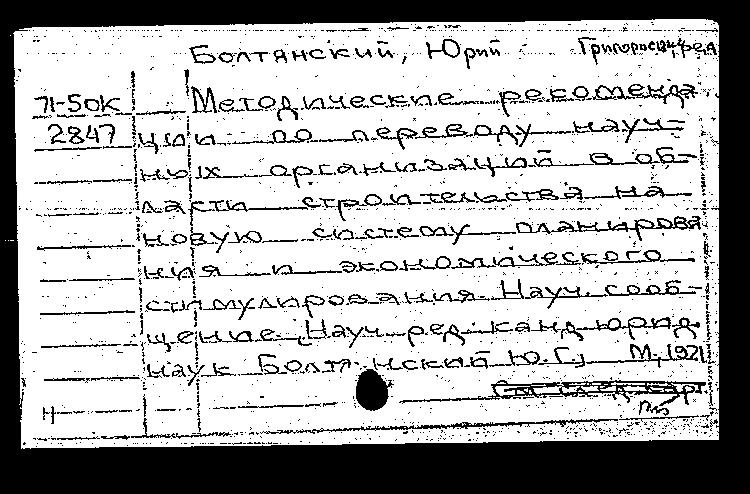 Болтянский, Юрий Григорьевич, ред.
71-50К Методические рекоменда
2847 ции по переводу науч-
ных организаций в об-
ласти строительства на
новую систему планирова
ния и экономического
стимулирования. Науч. сооб-
щение. [Науч. ред. канд. юрид.
наук Болтянский Ю.Г.] М., 1971
См. след. карт.